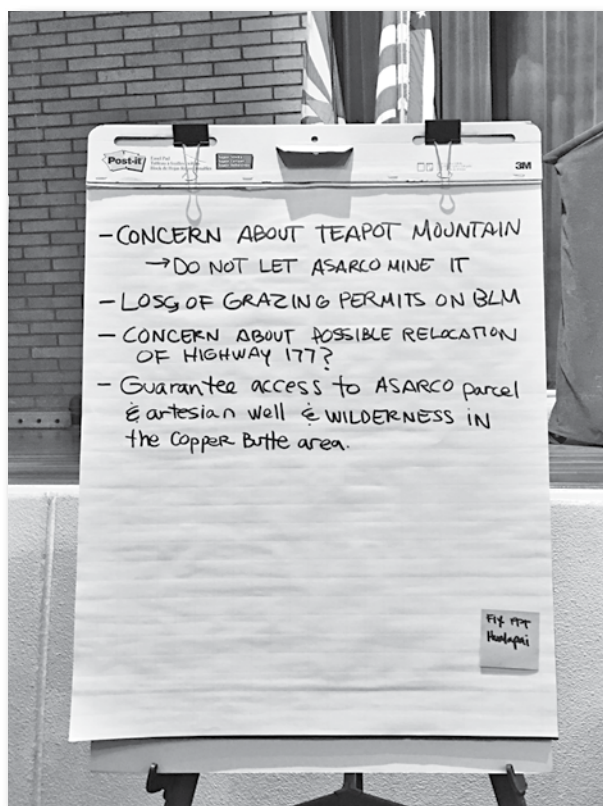 Post-it
3M
- CONCERN ABOUT TEAPOT MOUNTAIN
→ DO NOT LET ASARCO MINE IT
- LOSS OF GRAZING PERMITS ON BLM
- CONCERN ABOUT POSSIBLE RELOCATION
OF HIGHWAY 177?
- Guarantee access to ASARCO parcel
& artesian well & WILDERNESS IN
the Copper Butte area.
Fix PPT
Hualapai